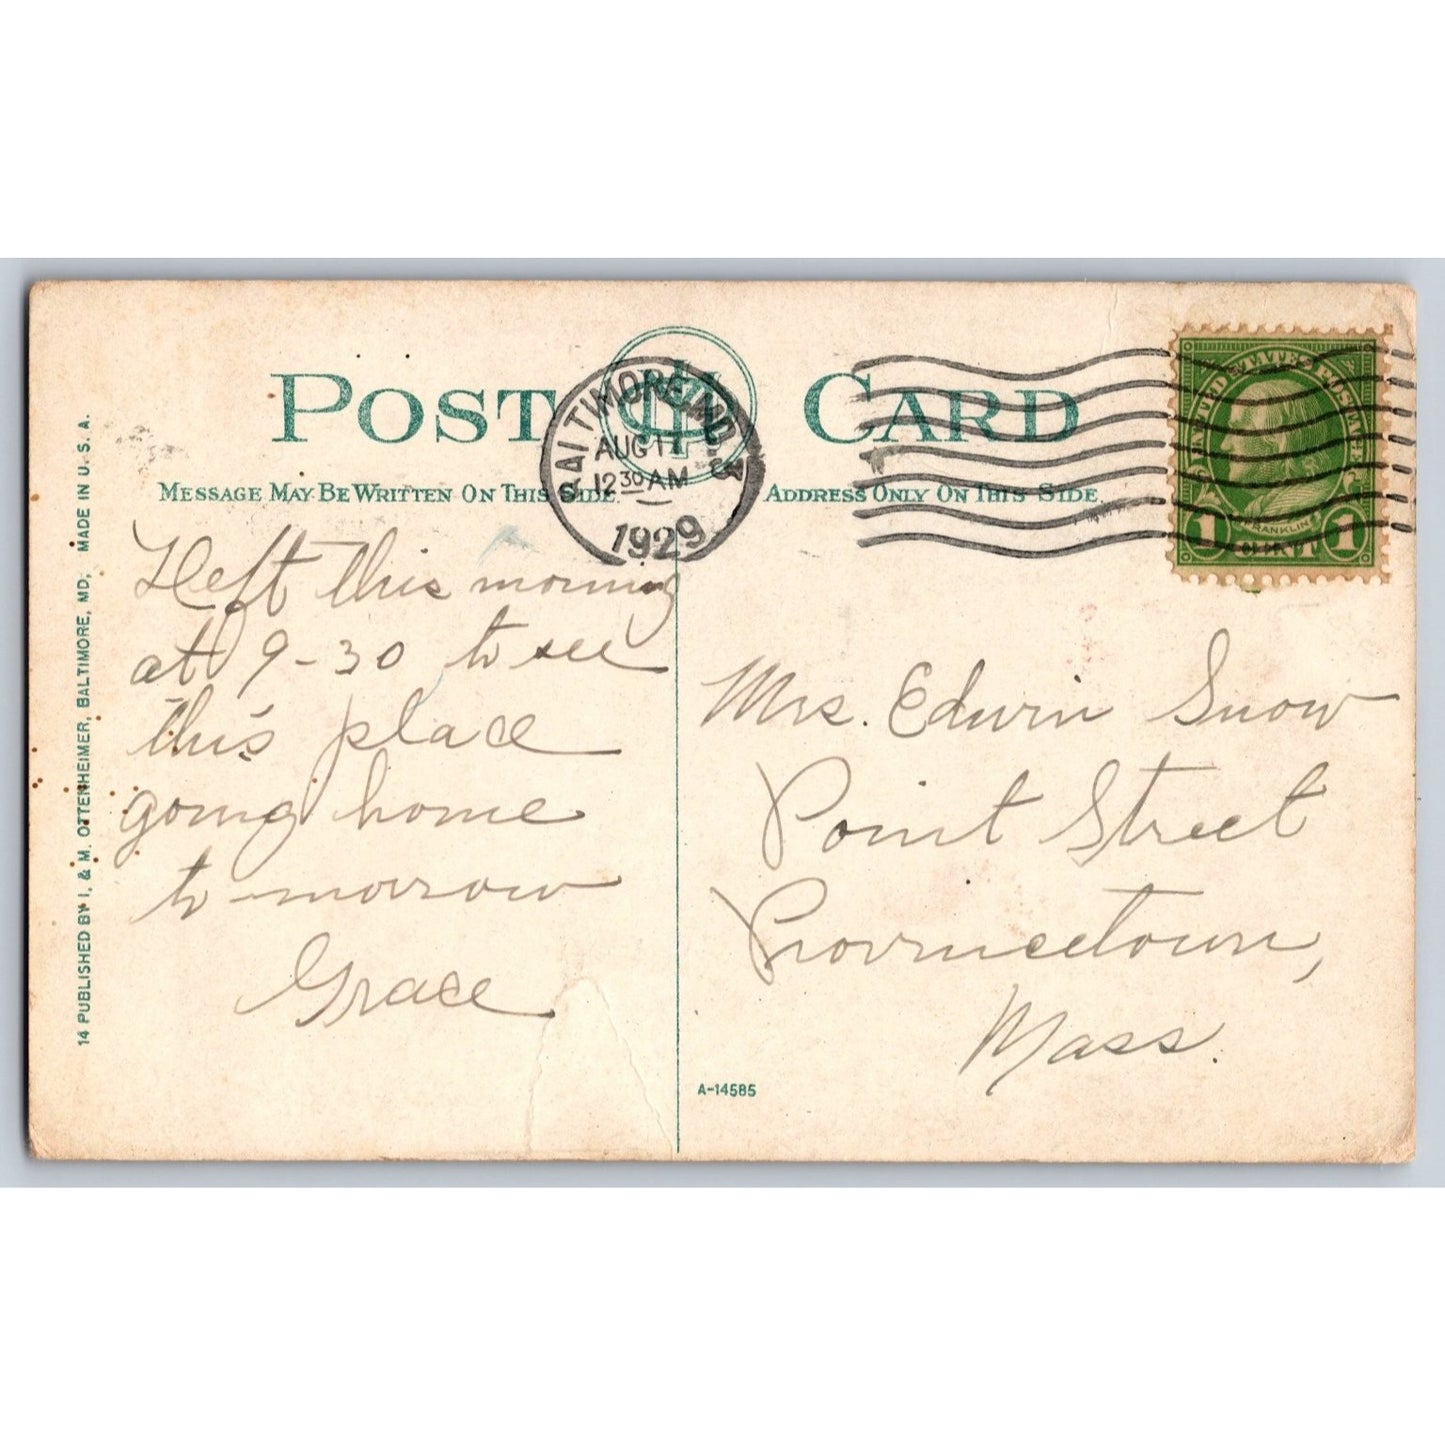 POST CARD
BALTIMORE, MD.
AUG 17
12 30 AM
1929
UNITED STATES POSTAGE
FRANKLIN
1 1
MESSAGE MAY BE WRITTEN ON THIS SIDE.
ADDRESS ONLY ON THIS SIDE.
Left this morning
at 9-30 to see
this place
going home
to-morrow
Grace
Mrs. Edwin Snow
Point Street
Provincetown,
Mass.
A-14585
14 PUBLISHED BY I. & M. OTTENHEIMER, BALTIMORE, MD. MADE IN U. S. A.